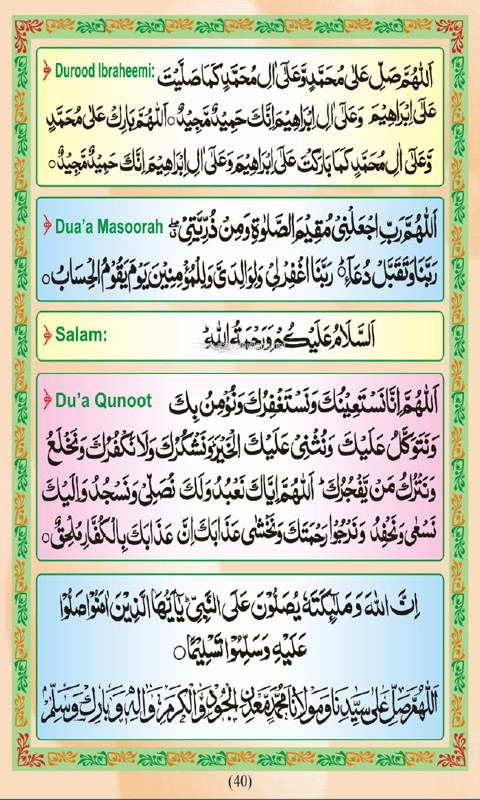 Durood Ibraheemi: اَللّٰهُمَّ صَلِّ عَلٰی مُحَمَّدٍ وَّعَلٰٓی اٰلِ مُحَمَّدٍ كَمَا صَلَّيْتَ
عَلٰٓی اِبْرَاهِيْمَ وَعَلٰٓی اٰلِ اِبْرَاهِيْمَ اِنَّكَ حَمِيْدٌ مَّجِيْدٌ○ اَللّٰهُمَّ بَارِكْ عَلٰی مُحَمَّدٍ
وَّعَلٰٓی اٰلِ مُحَمَّدٍ كَمَا بَارَكْتَ عَلٰٓی اِبْرَاهِيْمَ وَعَلٰٓی اٰلِ اِبْرَاهِيْمَ اِنَّكَ حَمِيْدٌ مَّجِيْدٌ○
Dua'a Masoorah اَللّٰهُمَّ رَبِّ اجْعَلْنِیْ مُقِيْمَ الصَّلٰوةِ وَمِنْ ذُرِّيَّتِیْ
رَبَّنَا وَتَقَبَّلْ دُعَآءِ رَبَّنَا اغْفِرْلِیْ وَلِوَالِدَیَّ وَلِلْمُؤْمِنِيْنَ يَوْمَ يَقُوْمُ الْحِسَابُ○
Salam: اَلسَّلَامُ عَلَيْكُمْ وَرَحْمَةُ اللّٰهِ
Du'a Qunoot اَللّٰهُمَّ اِنَّا نَسْتَعِيْنُكَ وَنَسْتَغْفِرُكَ وَنُؤْمِنُ بِكَ
وَنَتَوَكَّلُ عَلَيْكَ وَنُثْنِیْ عَلَيْكَ الْخَيْرَ وَنَشْكُرُكَ وَلَا نَكْفُرُكَ وَنَخْلَعُ
وَنَتْرُكُ مَنْ يَّفْجُرُكَ اَللّٰهُمَّ اِيَّاكَ نَعْبُدُ وَلَكَ نُصَلِّیْ وَنَسْجُدُ وَاِلَيْكَ
نَسْعٰی وَنَحْفِدُ وَنَرْجُوْا رَحْمَتَكَ وَنَخْشٰی عَذَابَكَ اِنَّ عَذَابَكَ بِالْكُفَّارِ مُلْحِقٌ○
اِنَّ اللّٰهَ وَمَلٰٓئِكَتَهٗ يُصَلُّوْنَ عَلَی النَّبِیِّ يٰٓاَيُّهَا الَّذِيْنَ اٰمَنُوْا صَلُّوْا
عَلَيْهِ وَسَلِّمُوْا تَسْلِيْمًا○
اَللّٰهُمَّ صَلِّ عَلٰی سَيِّدِنَا وَمَوْلَانَا مُحَمَّدٍ مَّعْدِنِ الْجُوْدِ وَالْكَرَمِ وَاٰلِهٖ وَبَارِكْ وَسَلِّمْ
(40)